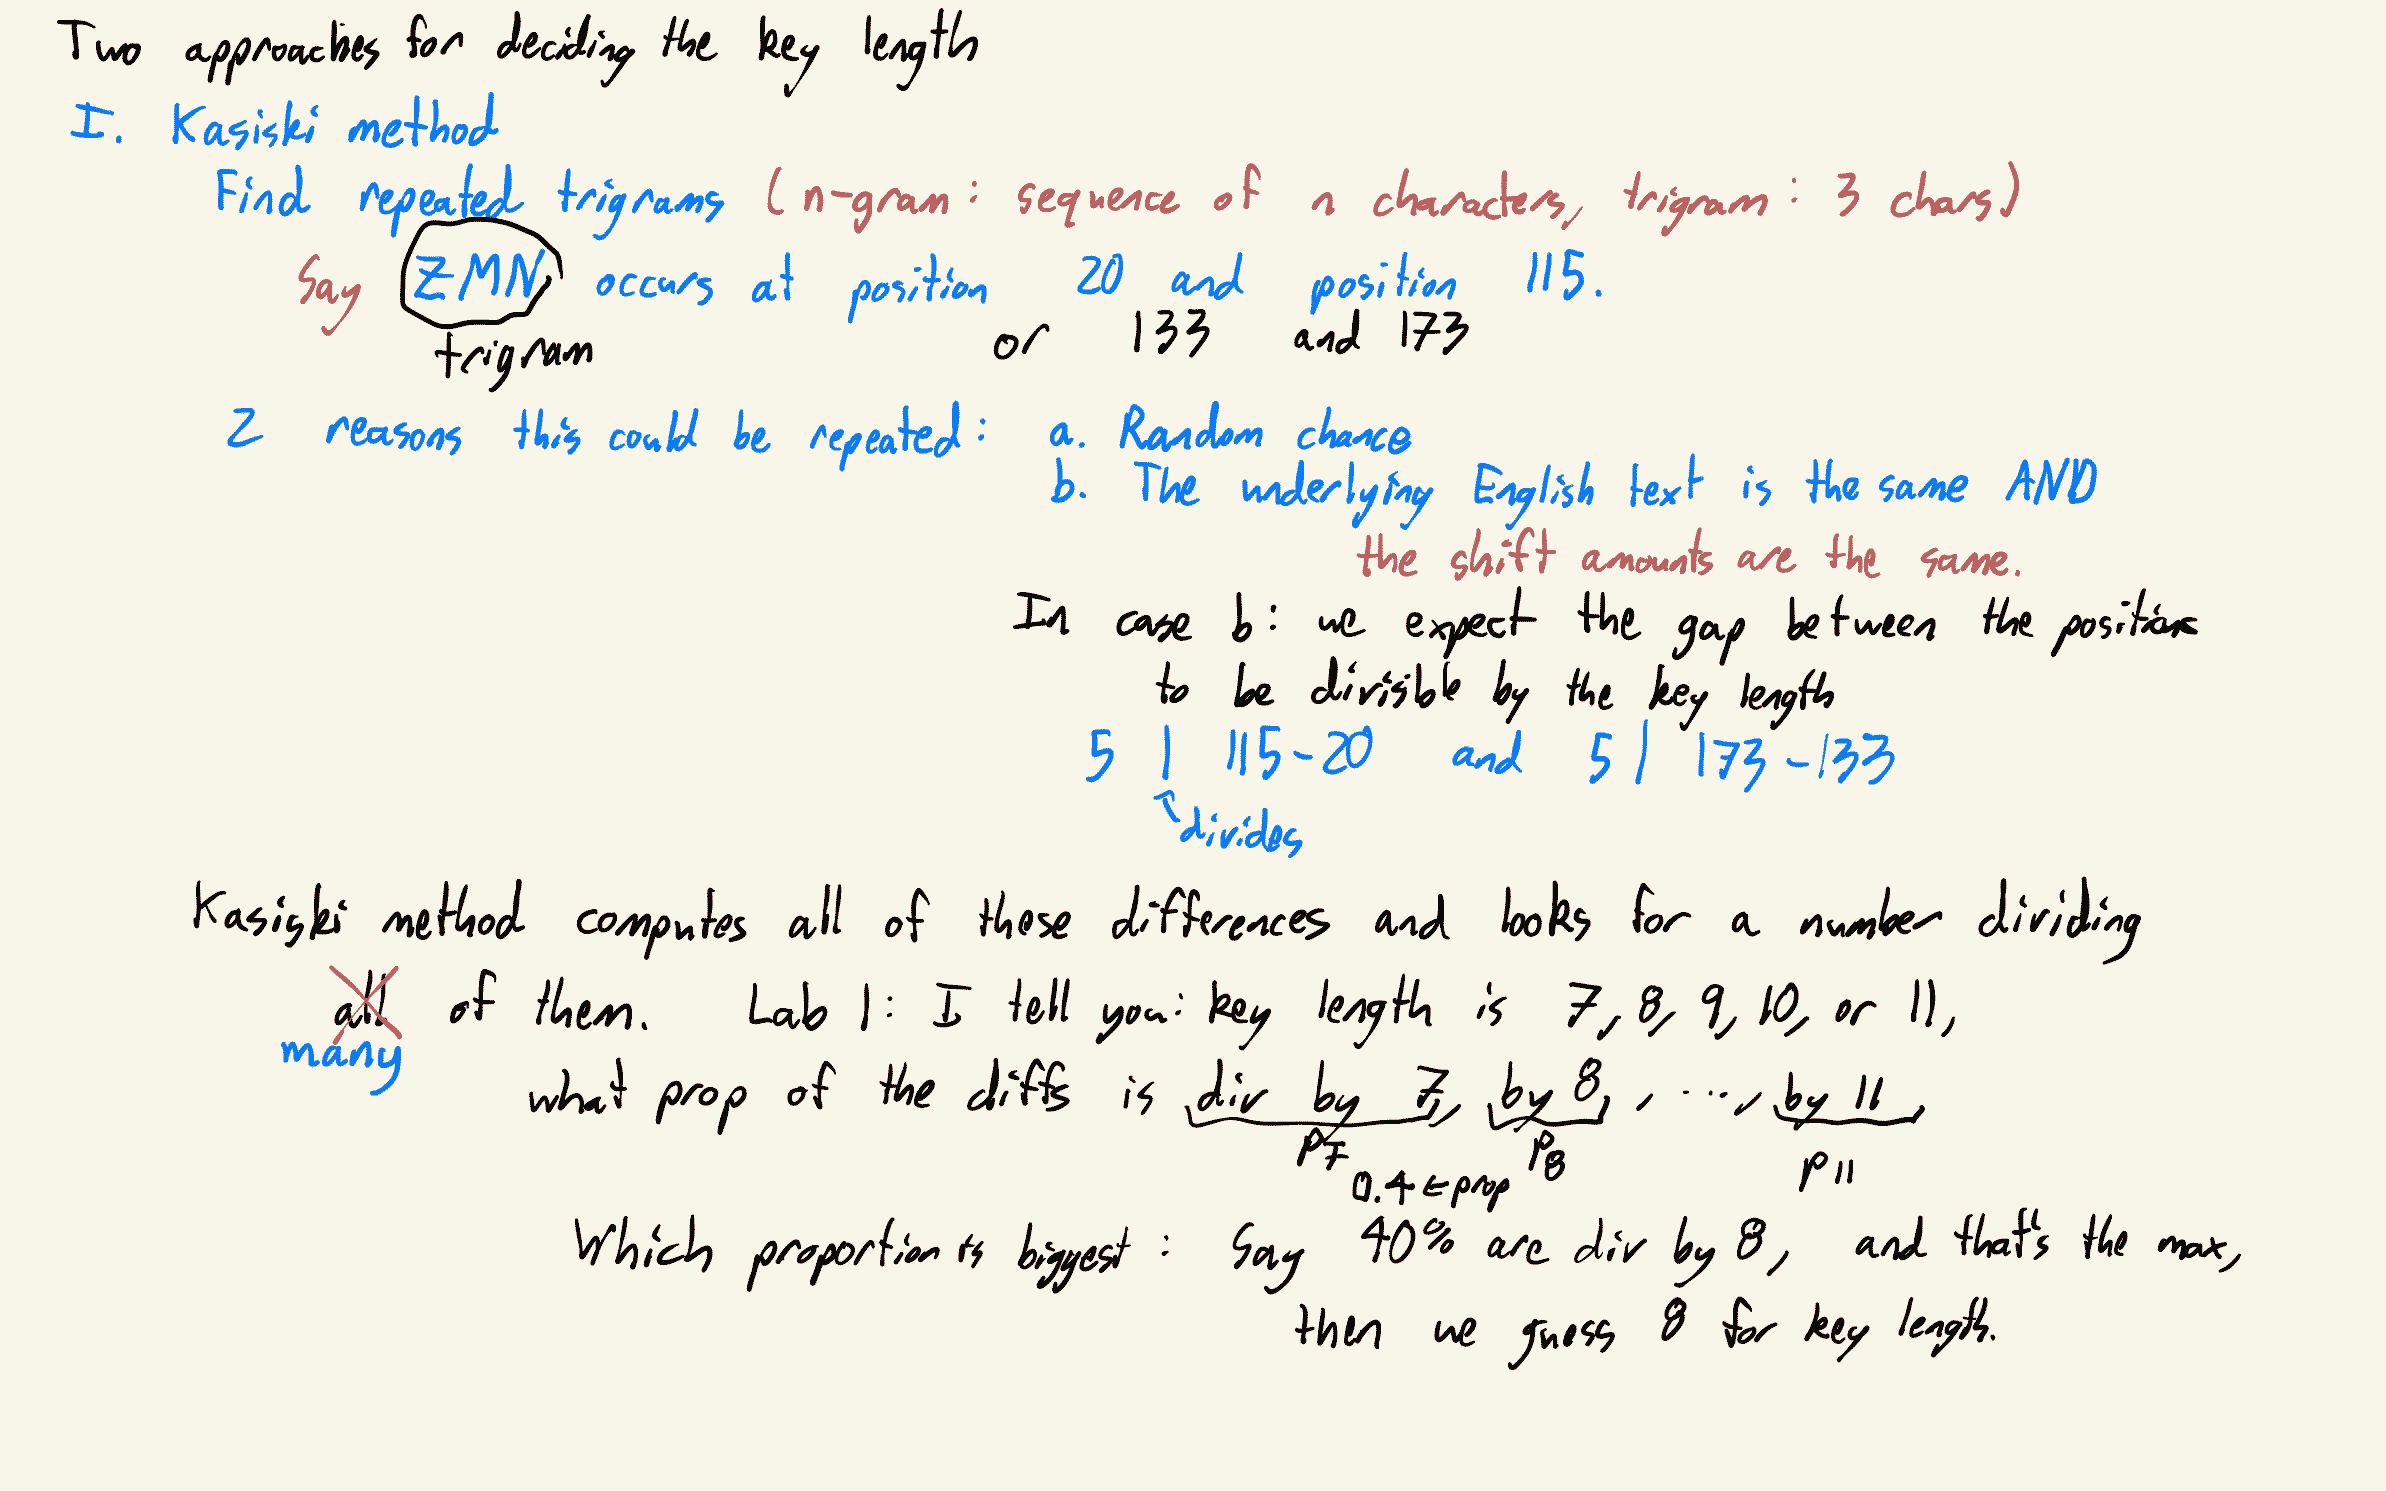 Two approaches for deciding the key length
I. Kasiski method
Find repeated trigrams (n-gram: sequence of n characters, trigram: 3 chars)
Say ZMN occurs at position 20 and position 115.
trigram or 133 and 173
2 reasons this could be repeated: a. Random chance
b. The underlying English text is the same AND
the shift amounts are the same.
In case b: we expect the gap between the positions
to be divisible by the key length
5 | 115-20 and 5 | 173-133
↑divides
Kasiski method computes all of these differences and looks for a number dividing
all of them. Lab 1: I tell you: key length is 7, 8, 9, 10, or 11,
many
what prop of the diffs is div by 7, by 8, , ..., by 11,
p7 p8 p11
0.4 ← prop
Which proportion is biggest: Say 40% are div by 8, and that's the max,
then we guess 8 for key length.